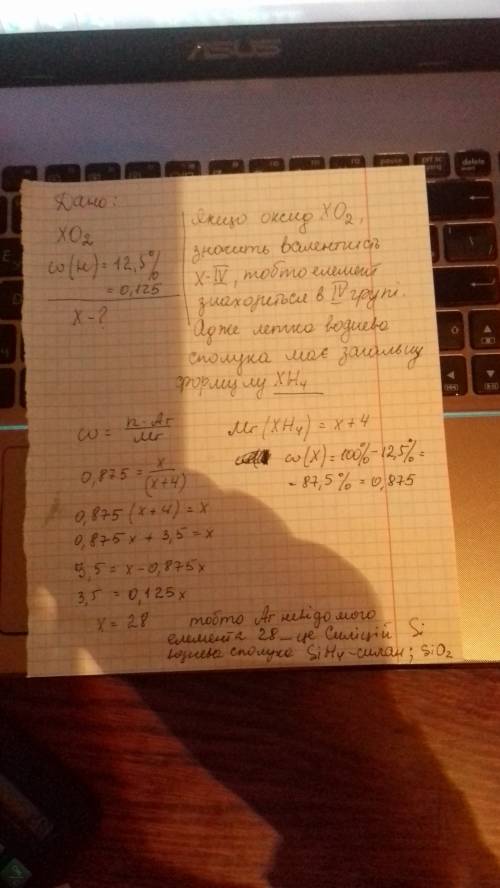 ASUS
pause
Дано:
XO₂
ω(H) = 12,5%
= 0,125
X - ?
Якщо оксид XO₂,
значить валентність
X - IV, тобто елемент
знаходиться в IV групі.
Адже летка воднева
сполука має загальну
формулу XH₄
ω = n·Ar / Mr
Mr(XH₄) = x+4
0,875 = x / (x+4)
ω(X) = 100% - 12,5% =
= 87,5% = 0,875
0,875(x+4) = x
0,875x + 3,5 = x
3,5 = x - 0,875x
3,5 = 0,125x
x = 28
тобто Ar невідомого
елемента 28 - це Силіцій Si
воднева сполука SiH₄ - силан; SiO₂